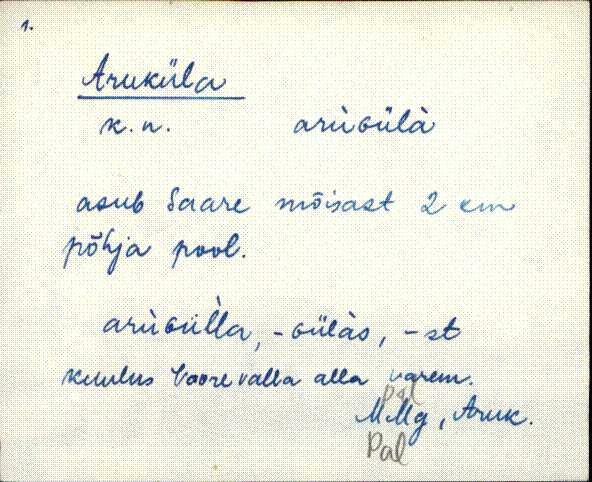 1.
Aruküla
k.n. arùɢülà
asub Saare mõisast 2 km
põhja pool.
arùɢül̀la, -ɢülàs, -st
kuulus Voore valla alla varem.
Pal
MMg, Aruk.
Pal